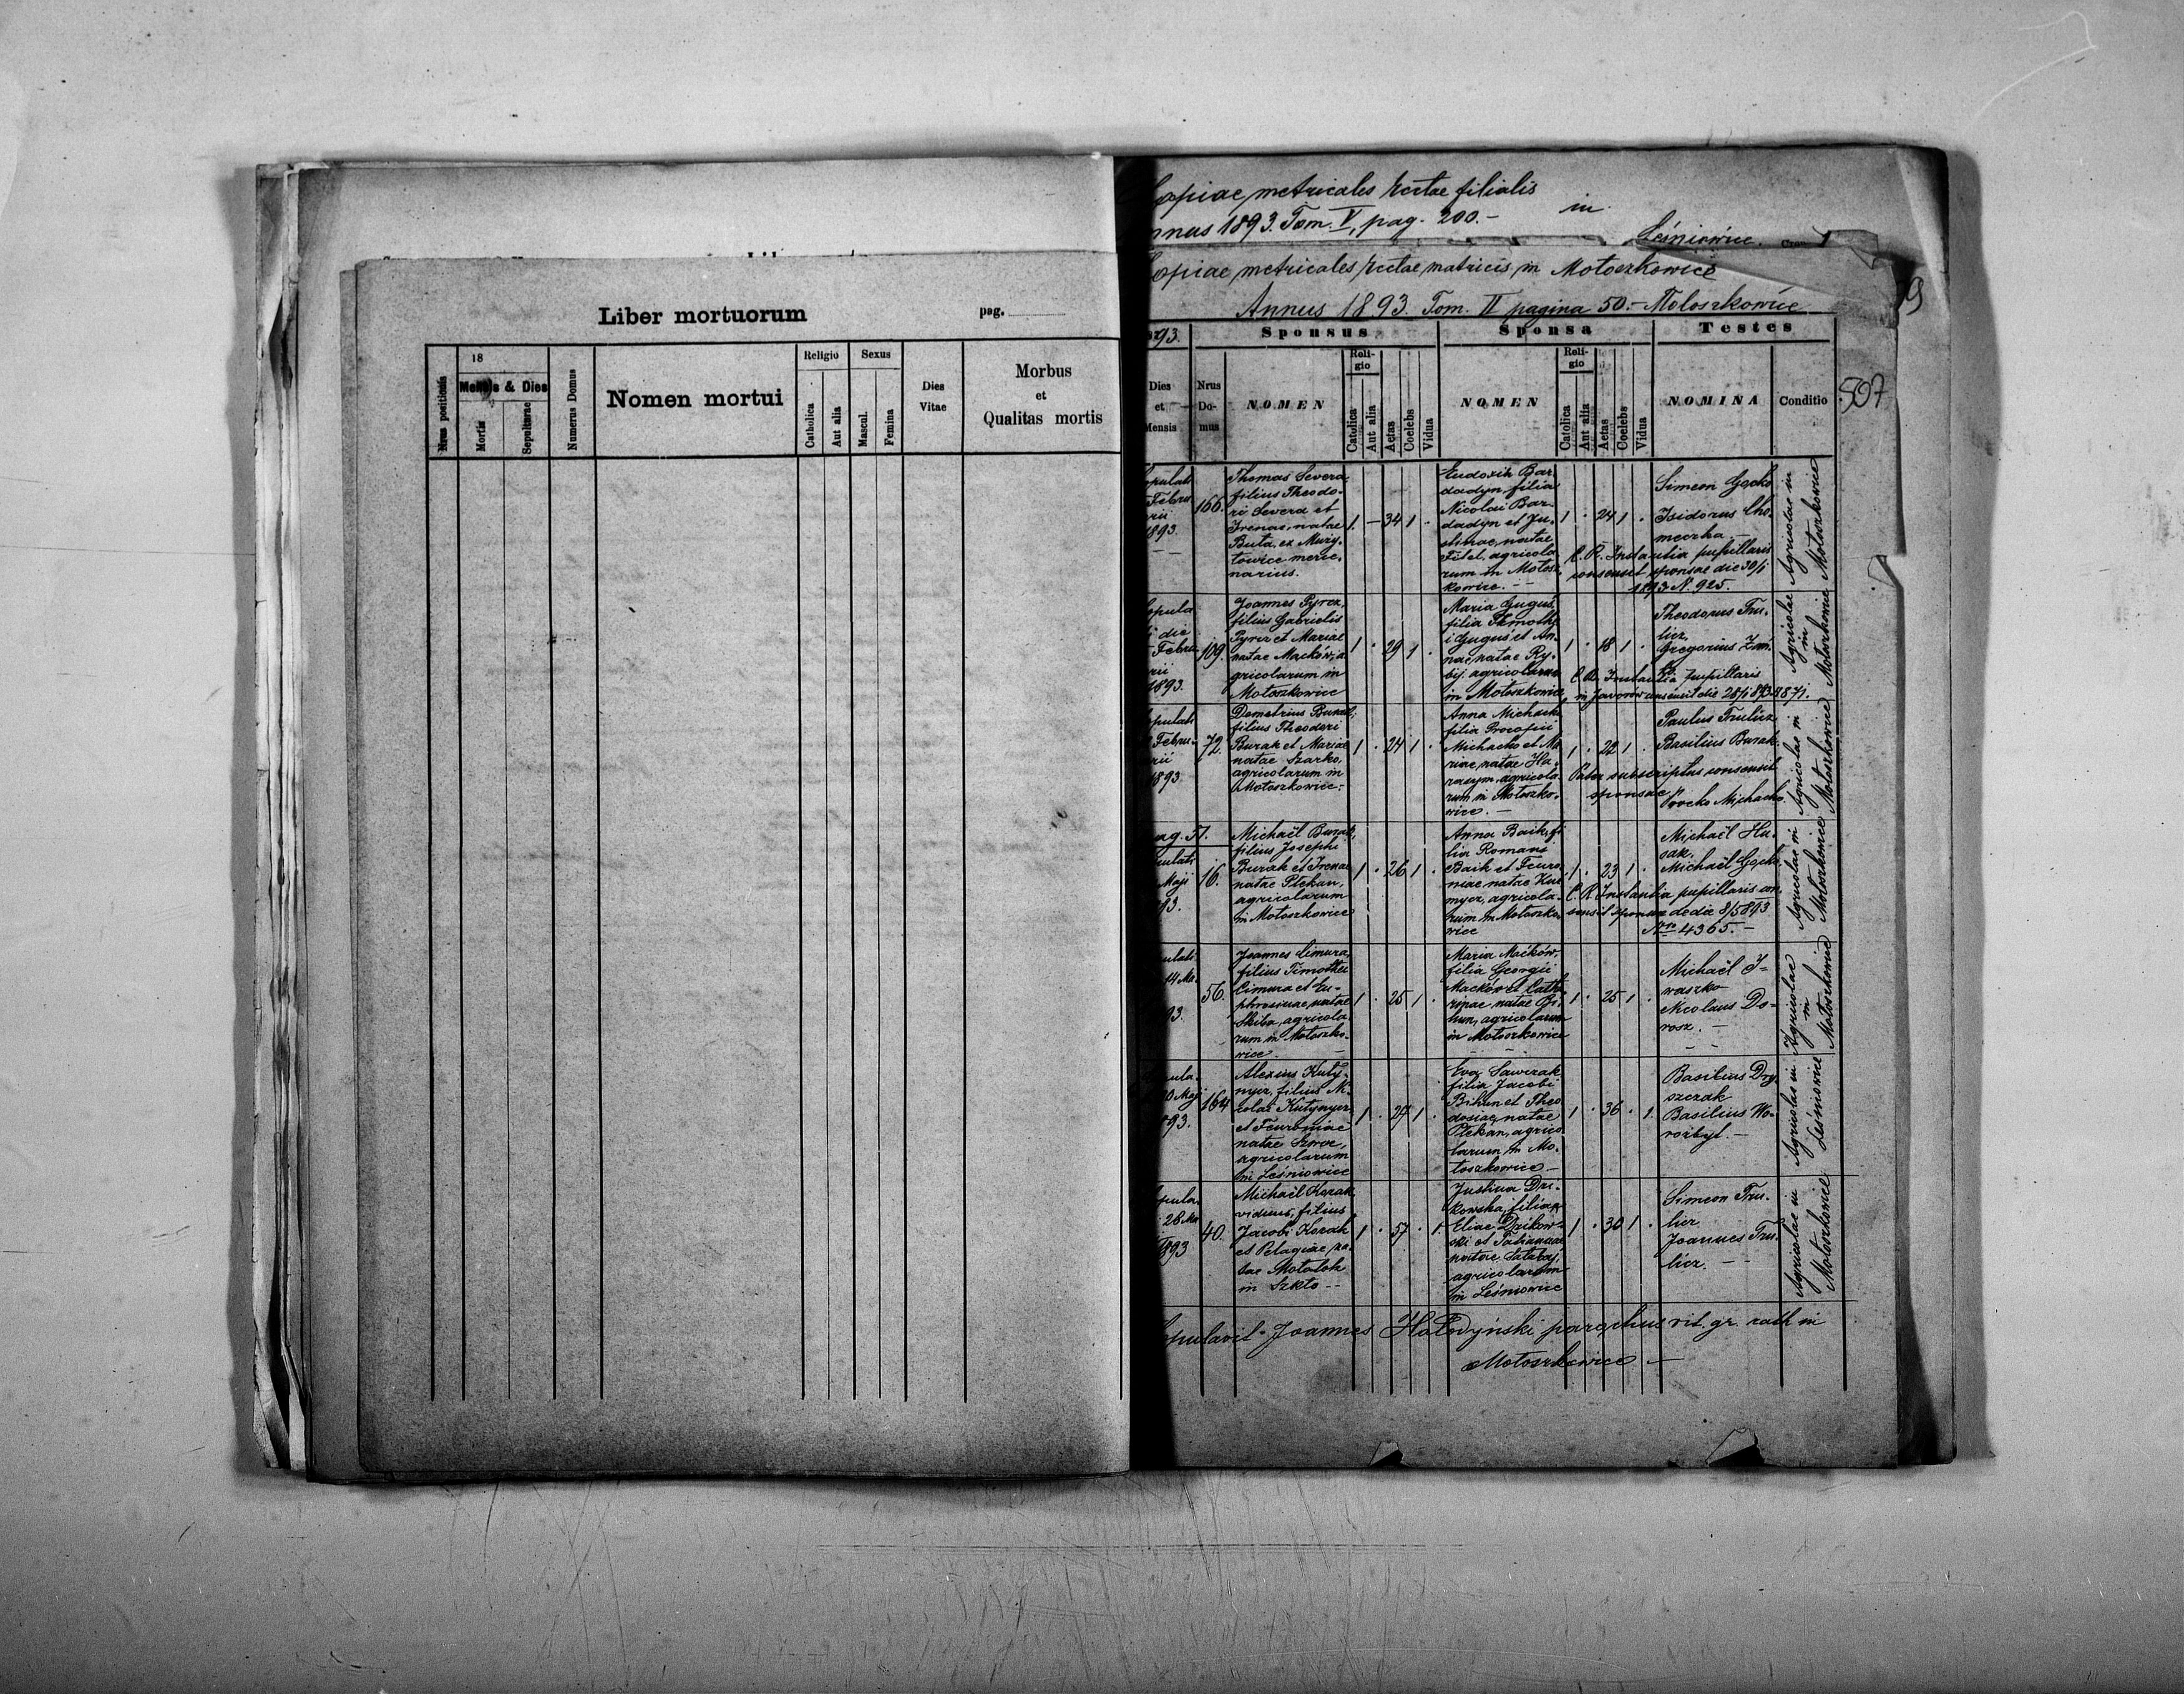 Liber mortuorum
pag.
Nrus positionis
18
Mensis & Dies
Mortis
Sepulturae
Numerus Domus
Nomen mortui
Religio
Catholica
Aut alia
Sexus
Mascul.
Femina
Dies
Vitae
Morbus
et
Qualitas mortis
opiae metricales filialis in
nnus 1893. Tom. V, pag. 200.-
Leśniowice.
opiae metricales matricis in Mołoszkowice
Annus 1893. Tom. II pagina 50.- Mołoszkowice
9
507
93.
Sponsus
Sponsa
Testes
Dies
et
Mensis
Nrus
Do-
mus
NOMEN
Reli-
gio
Catolica
Aut alia
Aetas
Coelebs
Vidua
NOMEN
Reli-
gio
Catolica
Aut alia
Aetas
Coelebs
Vidua
NOMINA
Conditio
opulati
Febru
rii
1893.
166.
Thomas Severa,
filius Theodo-
ri Severa et
Irenae, natae
Buta, ex Muży-
łowice merce-
narius.
1 - 34 1 .
Eudoxia Bar-
dadyn, filia
Nicolai Bar-
dadyn et Ju-
stinae, natae
Fitel, agricola-
rum in Mołosz-
kowice. --
1 . 24 1 .
Simeon Gocko
Isidorus Cho-
meczka -
C. R. Instantia pupillaris
consensit sponsae die 30/1
1893 N. 925.
Agricolae in
Mołoszkowice
opula
i die
Febru
rii
1893.
109.
Joannes Pyrcz,
filius Gabrielis
Pyrcz et Mariae
natae Maćków, a-
gricolarum in
Mołoszkowice
1 . 29 1 .
Maria Guguś,
filia Timothe-
i Guguś et An-
nae, natae Ry-
bij, agricolarum
in Mołoszkowice
1 . 18 1 .
Theodorus Tru-
licz,
Gregorius
C. R. Instantia pupillaris
in Javorow consensit die 28/1 893 871.
Agricolae
in
Mołoszkowice
opulati
Febru-
rii
1893
72.
Demetrius Burak,
filius Theodori
Burak et Mariae
natae Szarko,
agricolarum in
Mołoszkowice.-
1 . 24 1 .
Anna Michacko
filia Procopii
Michacko et Ma-
riae, natae Ha-
rasym, agricola-
rum in Mołoszko-
wice. -
1 . 22 1 .
Paulus Trulicz
Basilius Burak.
Pater subscriptus consensit
sponsae
Procko Michacko.
Agricolae in
Mołoszkowice
ag. 51.
pulati
Maji
93.
16.
Michaël Burak,
filius Josephi
Burak et Irenae
natae Plekan,
agricolarum
in Mołoszkowice
1 . 26 1 .
Anna Baik, fi-
lia Romani
Baik et Feuro-
niae natae
agricola-
rum in Mołoszko-
wice
1 . 23 1 .
Michaël Hu-
sak.
Michaël Gocko
C. R. Instantia pupillaris con-
sensit sponsae de die 8/5 893
Nro 4365. -
Agricolae in
Mołoszkowice
ulati
14 Ma
93.
56.
Joannes Cimura,
filius Timothei
Cimura et Eu-
phrosinae, natae
Skiba, agricola-
rum in Mołoszko-
wice -
1 . 25 1 .
Maria Maćków,
filia Georgii
Maćków et Catha-
rinae natae Bi-
hun, agricolarum
in Mołoszkowice
1 . 25 1 .
Michaël I-
waszko
Nicolaus Do-
rosz. -
Agricolae
in
Mołoszkowice
ula-
0 Maj
93.
164
Alexius Kuty-
nycz, filius Ni-
colai Kutynycz
et Feuroniae
natae Szwec,
agricolarum
in Leśniowice
1 . 27 1 .
Eva Sawczak
filia Jacobi
Bihun et Theo
dosiae, natae
Plekan, agrico-
larum in Mo-
łoszkowice -
1 . 36 . 1.
Basilius Dry-
szczak
Basilius Wo-
rożbyt. -
Agricolae in
Leśniowice
opula-
28 Ma
1893
40.
Michaël Kozak,
viduus, filius
Jacobi Kozak
et Pelagiae na-
tae Motoloh
in Szkło --
1 . 57 . 1.
Justina Dzi-
kowska, filia
Eliae Dzikow-
ski et Tatiannae
natae
agricolarum
in Leśniowice
1 . 30 1 .
Simeon Tru-
licz
Joannes Tru-
licz. --
Agricolae in
Mołoszkowice
opulavit Joannes Hołodyński parochus rit. gr. cath in
Mołoszkowice -